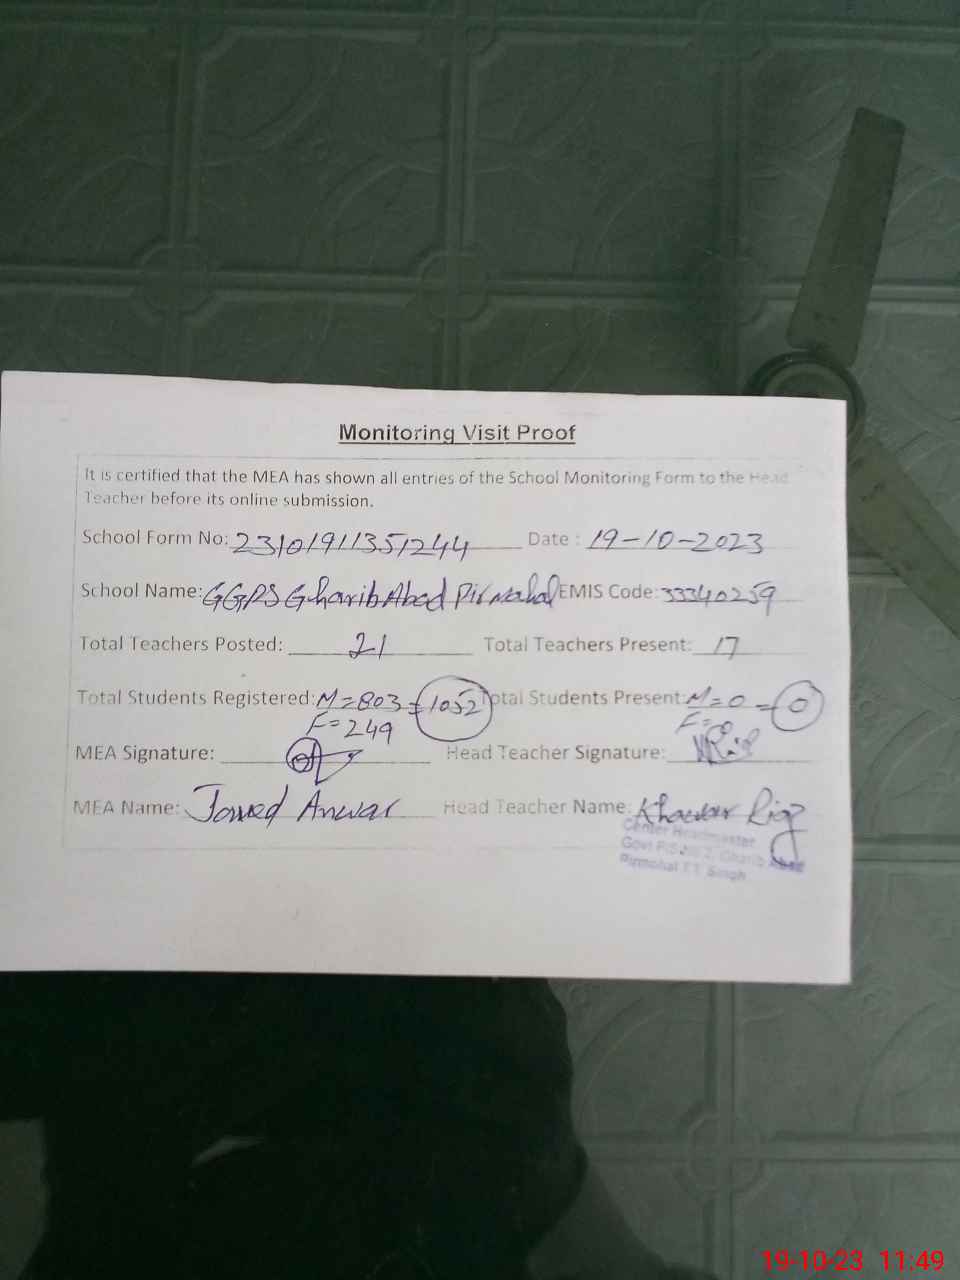 Monitoring Visit Proof
It is certified that the MEA has shown all entries of the School Monitoring Form to the Head
Teacher before its online submission.
School Form No: 23101911351244 Date : 19-10-2023
School Name: GGPS Gharib Abad Pirmahal EMIS Code: 33340259
Total Teachers Posted: 21 Total Teachers Present: 17
Total Students Registered: M=803 =1052 Total Students Present: M=0 =0
F=249 F=0
MEA Signature: Head Teacher Signature:
MEA Name: Javed Anwar Head Teacher Name: Khawar Riaz
Center Headmaster
Govt P/S Gharib Abad
Pirmahal T.T. Singh
19-10-23 11:49